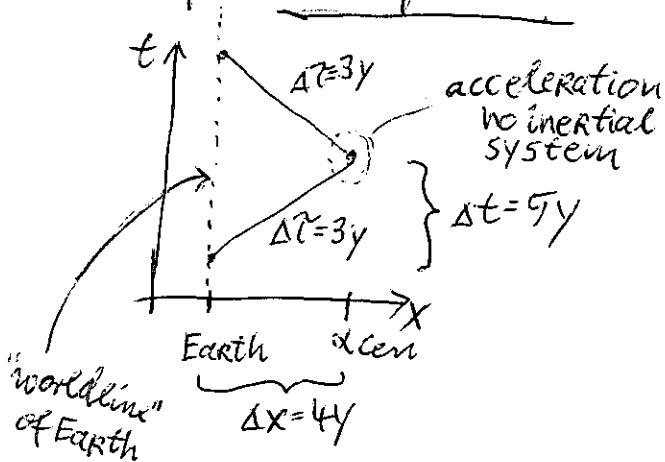 t
Δτ=3y
acceleration
no inertial
system
Δτ=3y
Δt=5y
x
Earth
α Cen
"worldline"
of Earth
Δx=4y